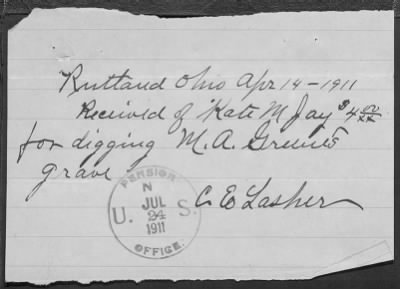 Rutland Ohio Apr 14 - 1911
Received of Kate M Jay $4 00/xx
for digging M. A. Greene's
grave
C E Lasher
PENSION
N
JUL
24
U. S.
1911
OFFICE.